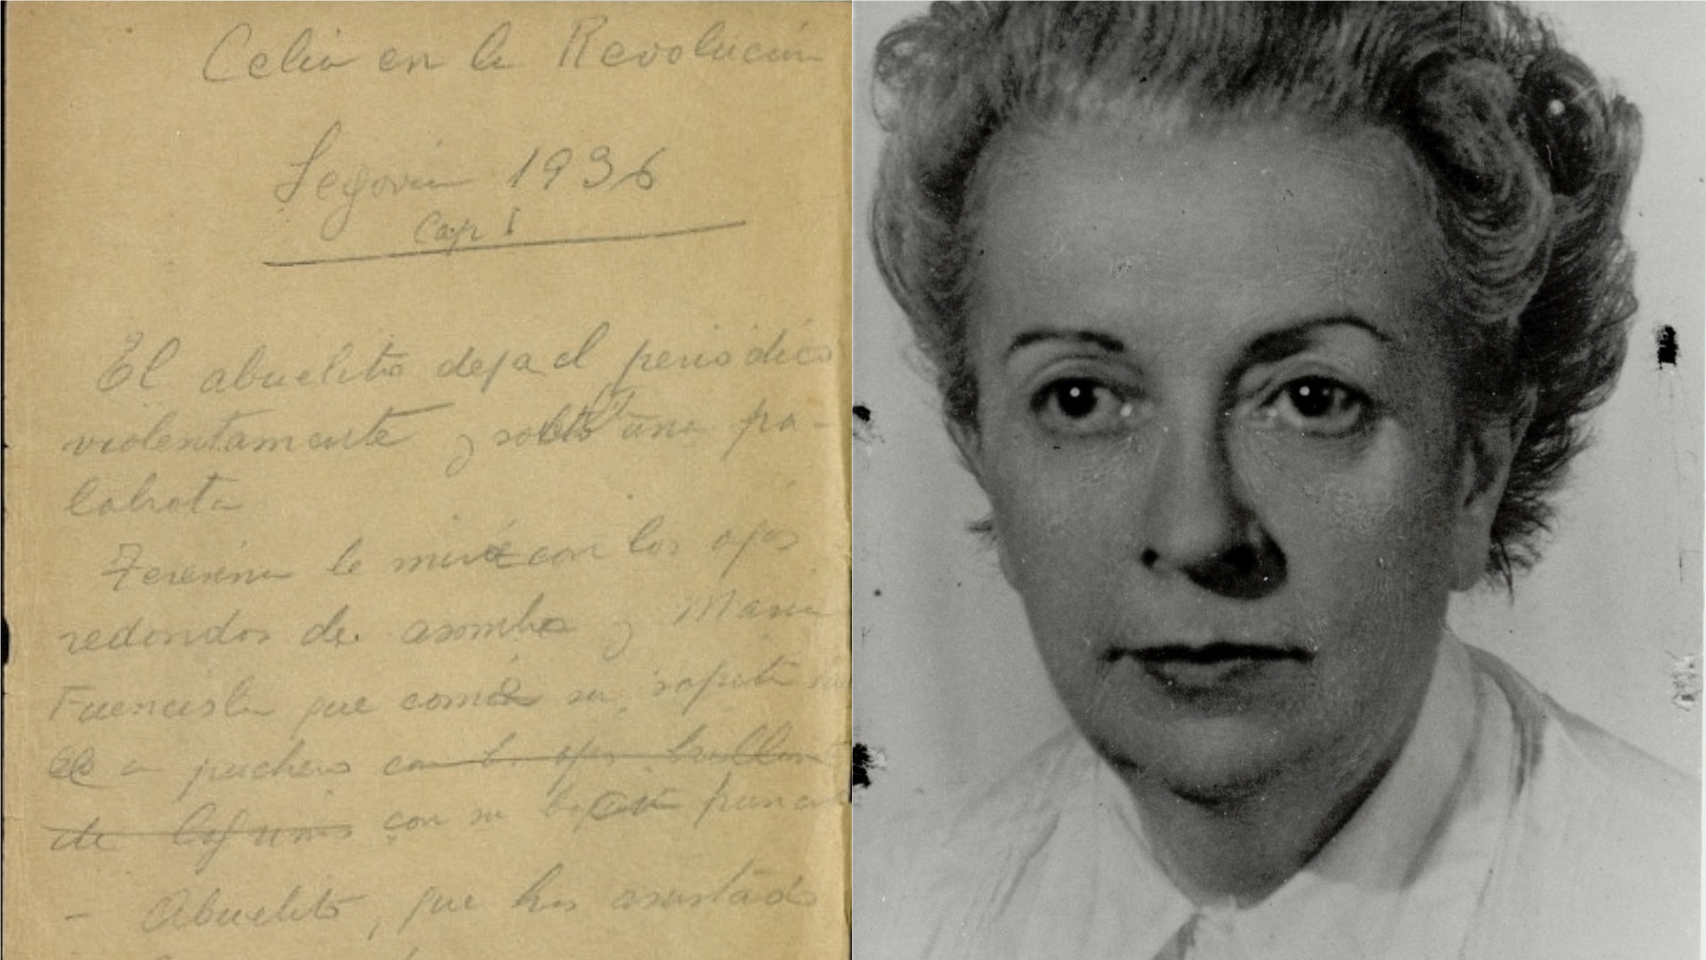 Celia en la Revolución
Segovia 1936
Cap I
El abuelito deja el periódico
violentamente y solto una pa-
labrota
Teresina le mira con los ojos
redondos de asombro y Maria
Fuencisla que comia su sopita
a puchero con los ojos brillan
de lagrimas con su
- Abuelito, que has asustado